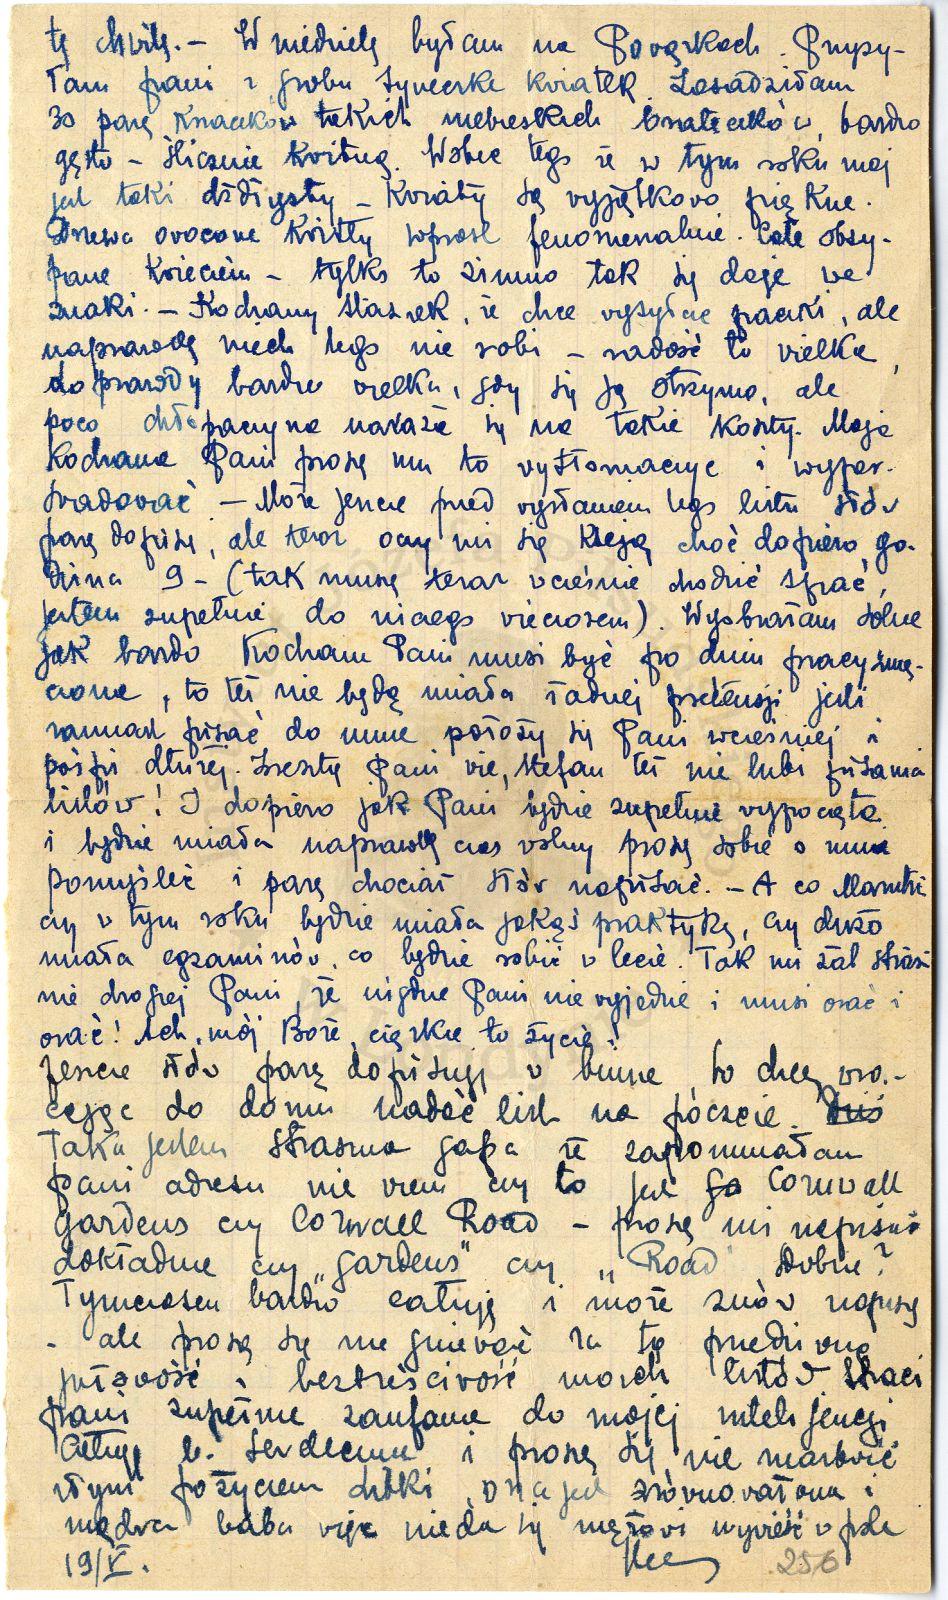 tę chwilę. – W niedzielę byłam na Powązkach. Przysy-
łam pani z grobu Syneczka kwiatek. Zasadziłam
30 parę krzaczków takich niebieskich bratecz­ków, bardzo
gęsto – ślicznie kwitną. Wobec tego że w tym roku maj
jest taki dżdżysty – kwiaty są wyjątkowo piękne.
Drzewa owocowe kwitły wprost fenomenalnie. Całe obsy-
pane kwieciem – tylko to zimno tak się daje we
znaki. – Kochany Staszek, że chce wysyłać paczki, ale
naprawdę niech tego nie robi – radość to wielka,
doprawdy bardzo wielka, gdy się ją otrzyma, ale
poco chłopaczyna naraża się na takie koszty. Moja
Kochana Pani proszę mu to wytłomaczyć i wyper-
swadować – Może jeszcze przed wysłaniem tego listu słów
parę dopiszę, ale teraz oczy mi się kleją choć dopiero go-
dzina 9 – (tak muszę teraz wcześnie chodzić spać,
jestem zupełnie do niczego wieczorem). Wyobrażam sobie
jak bardzo Kochana Pani musi być po dniu pracy zmę-
czona, to też nie będę miała żadnej pretensji jeśli
zamiast pisać do mnie położy się Pani wcześniej i
pośpi dłużej. Zresztą Pani wie, Stefan też nie lubi pisania
listów! I dopiero jak Pani będzie zupełnie wypoczęta
i będzie miała naprawdę czas wolny proszę sobie o mnie
pomyśleć i parę chociaż słów napisać. – A co
czy w tym roku będzie miała jakąś praktykę, czy dużo
miała egzaminów, co będzie robić w lecie. Tak mi żal strasz
nie drogiej Pani, że nigdzie Pani nie wyjedzie i musi orać i
orać! Ach, mój Boże, ciężkie to życie!
Jeszcze słów parę dopisuję w biurze, bo chcę wra-
cając do domu nadać list na poczcie. Dziś
Taka jestem straszna gapa że zapomniałam
pani adresu nie wiem czy to jest Ga Cornwall
Gardens czy Cornwall Road – proszę mi napisać
dokładnie czy „Gardens" czy „Road" Dobrze?
Tymczasem bardzo całuję i może znów napiszę
– ale proszę się nie gniewać za tę przedziwną
jałowość i beztreściwość moich listów Straci
pani zupełnie zaufanie do mojej inteligencji
Całuję b. serdecznie i proszę się nie martwić
złym pożyciem córki, ona jest zrównoważona i
mądra baba więc nieda się mężowi wywieść w pole
19/V.
256